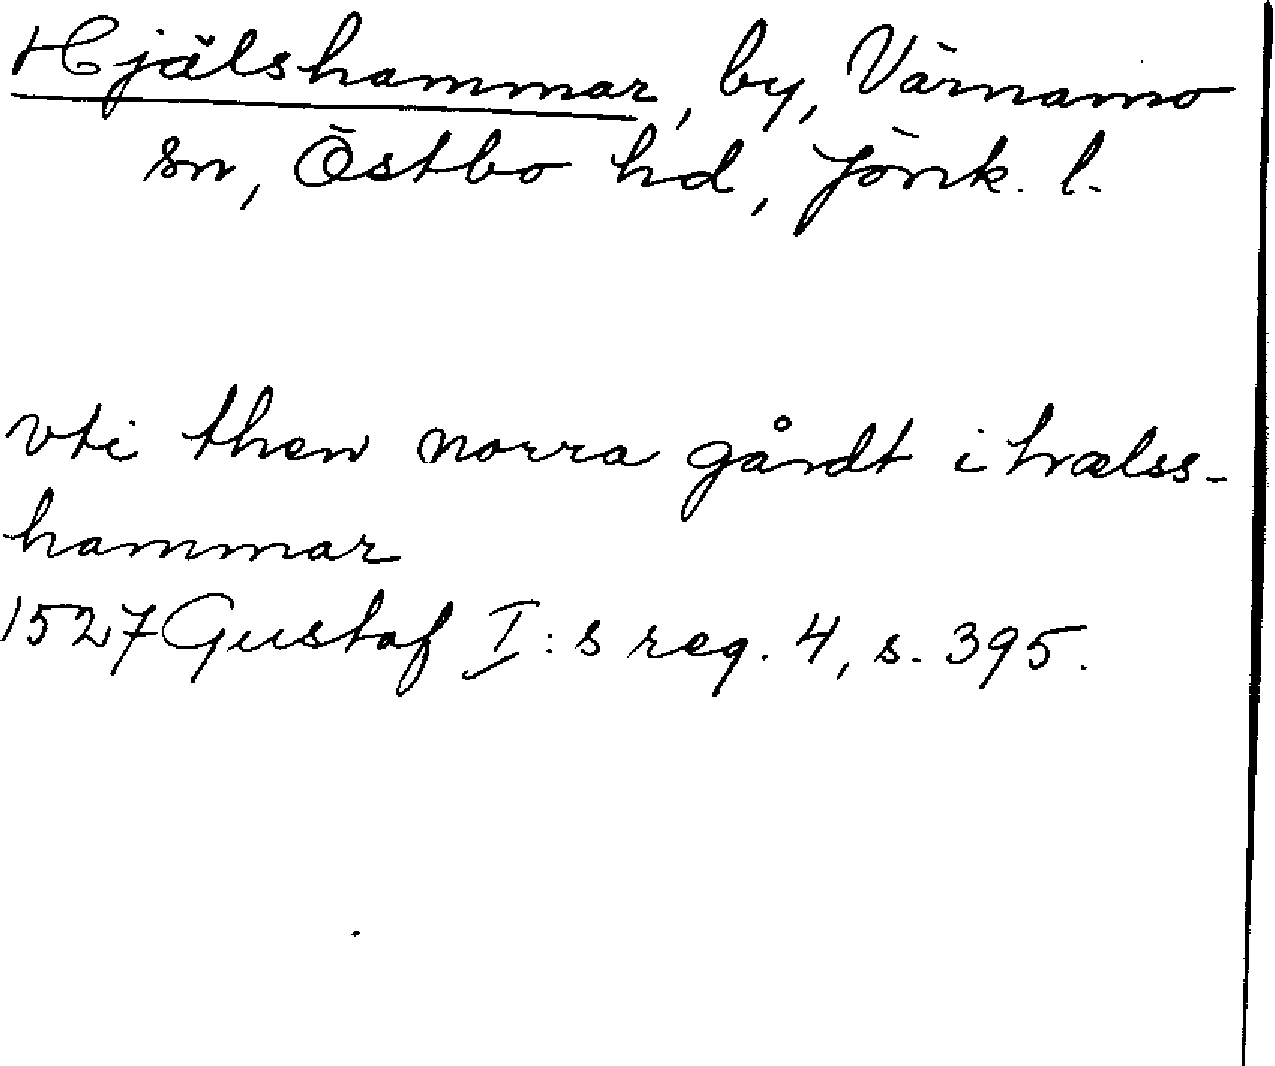 Hjälshammar, by, Värnamo
sn, Östbo hd, Jönk. l.
vti then norra gårdt i hvælss-
hammar
1527 Gustaf I:s reg. 4, s. 395.